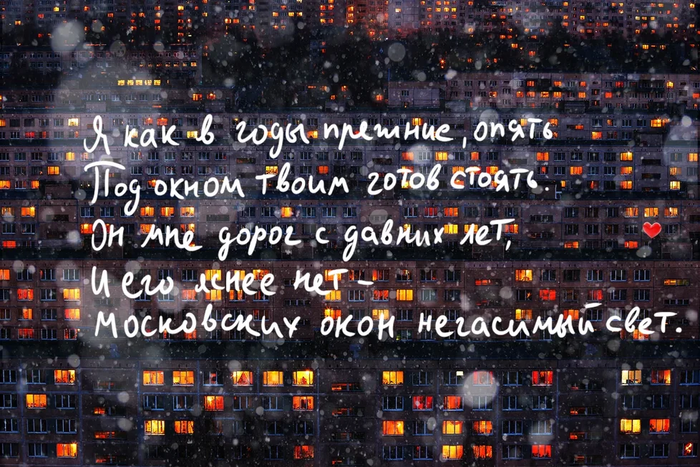 Я как в годы прежние, опять
Под окном твоим готов стоять.
Он мне дорог с давних лет,
И его яснее нет –
Московских окон негасимый свет.